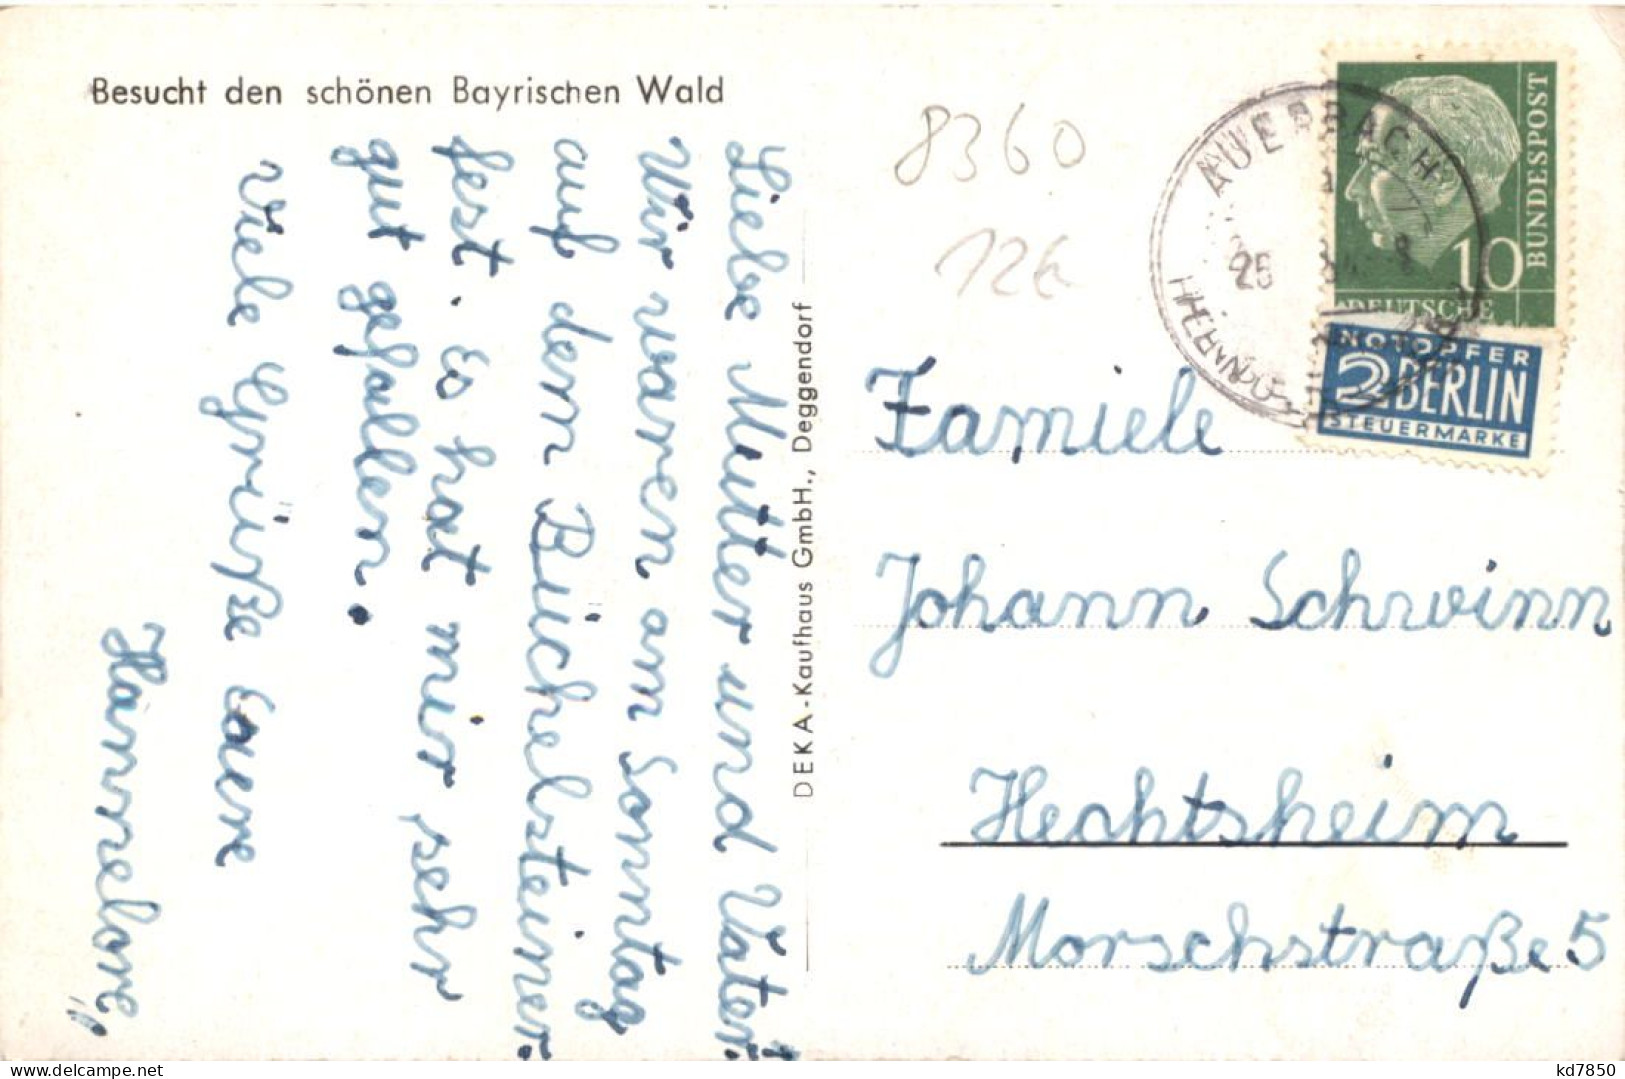 Besucht den schönen Bayrischen Wald
Liebe Mutter und Vater!
Wir waren am Sonntag
auf dem Büchelsteiner-
fest. Es hat mir sehr
gut gefallen.
Viele Grüße Eure
Hannelore
DEKA-Kaufhaus GmbH., Deggendorf
8360
12€
AUERBACH
25
10
BUNDESPOST
DEUTSCHE
NOTOPFER
2 BERLIN
STEUERMARKE
Famiele
Johann Schwinn
Hechtsheim
Morschstraße 5
kd7850